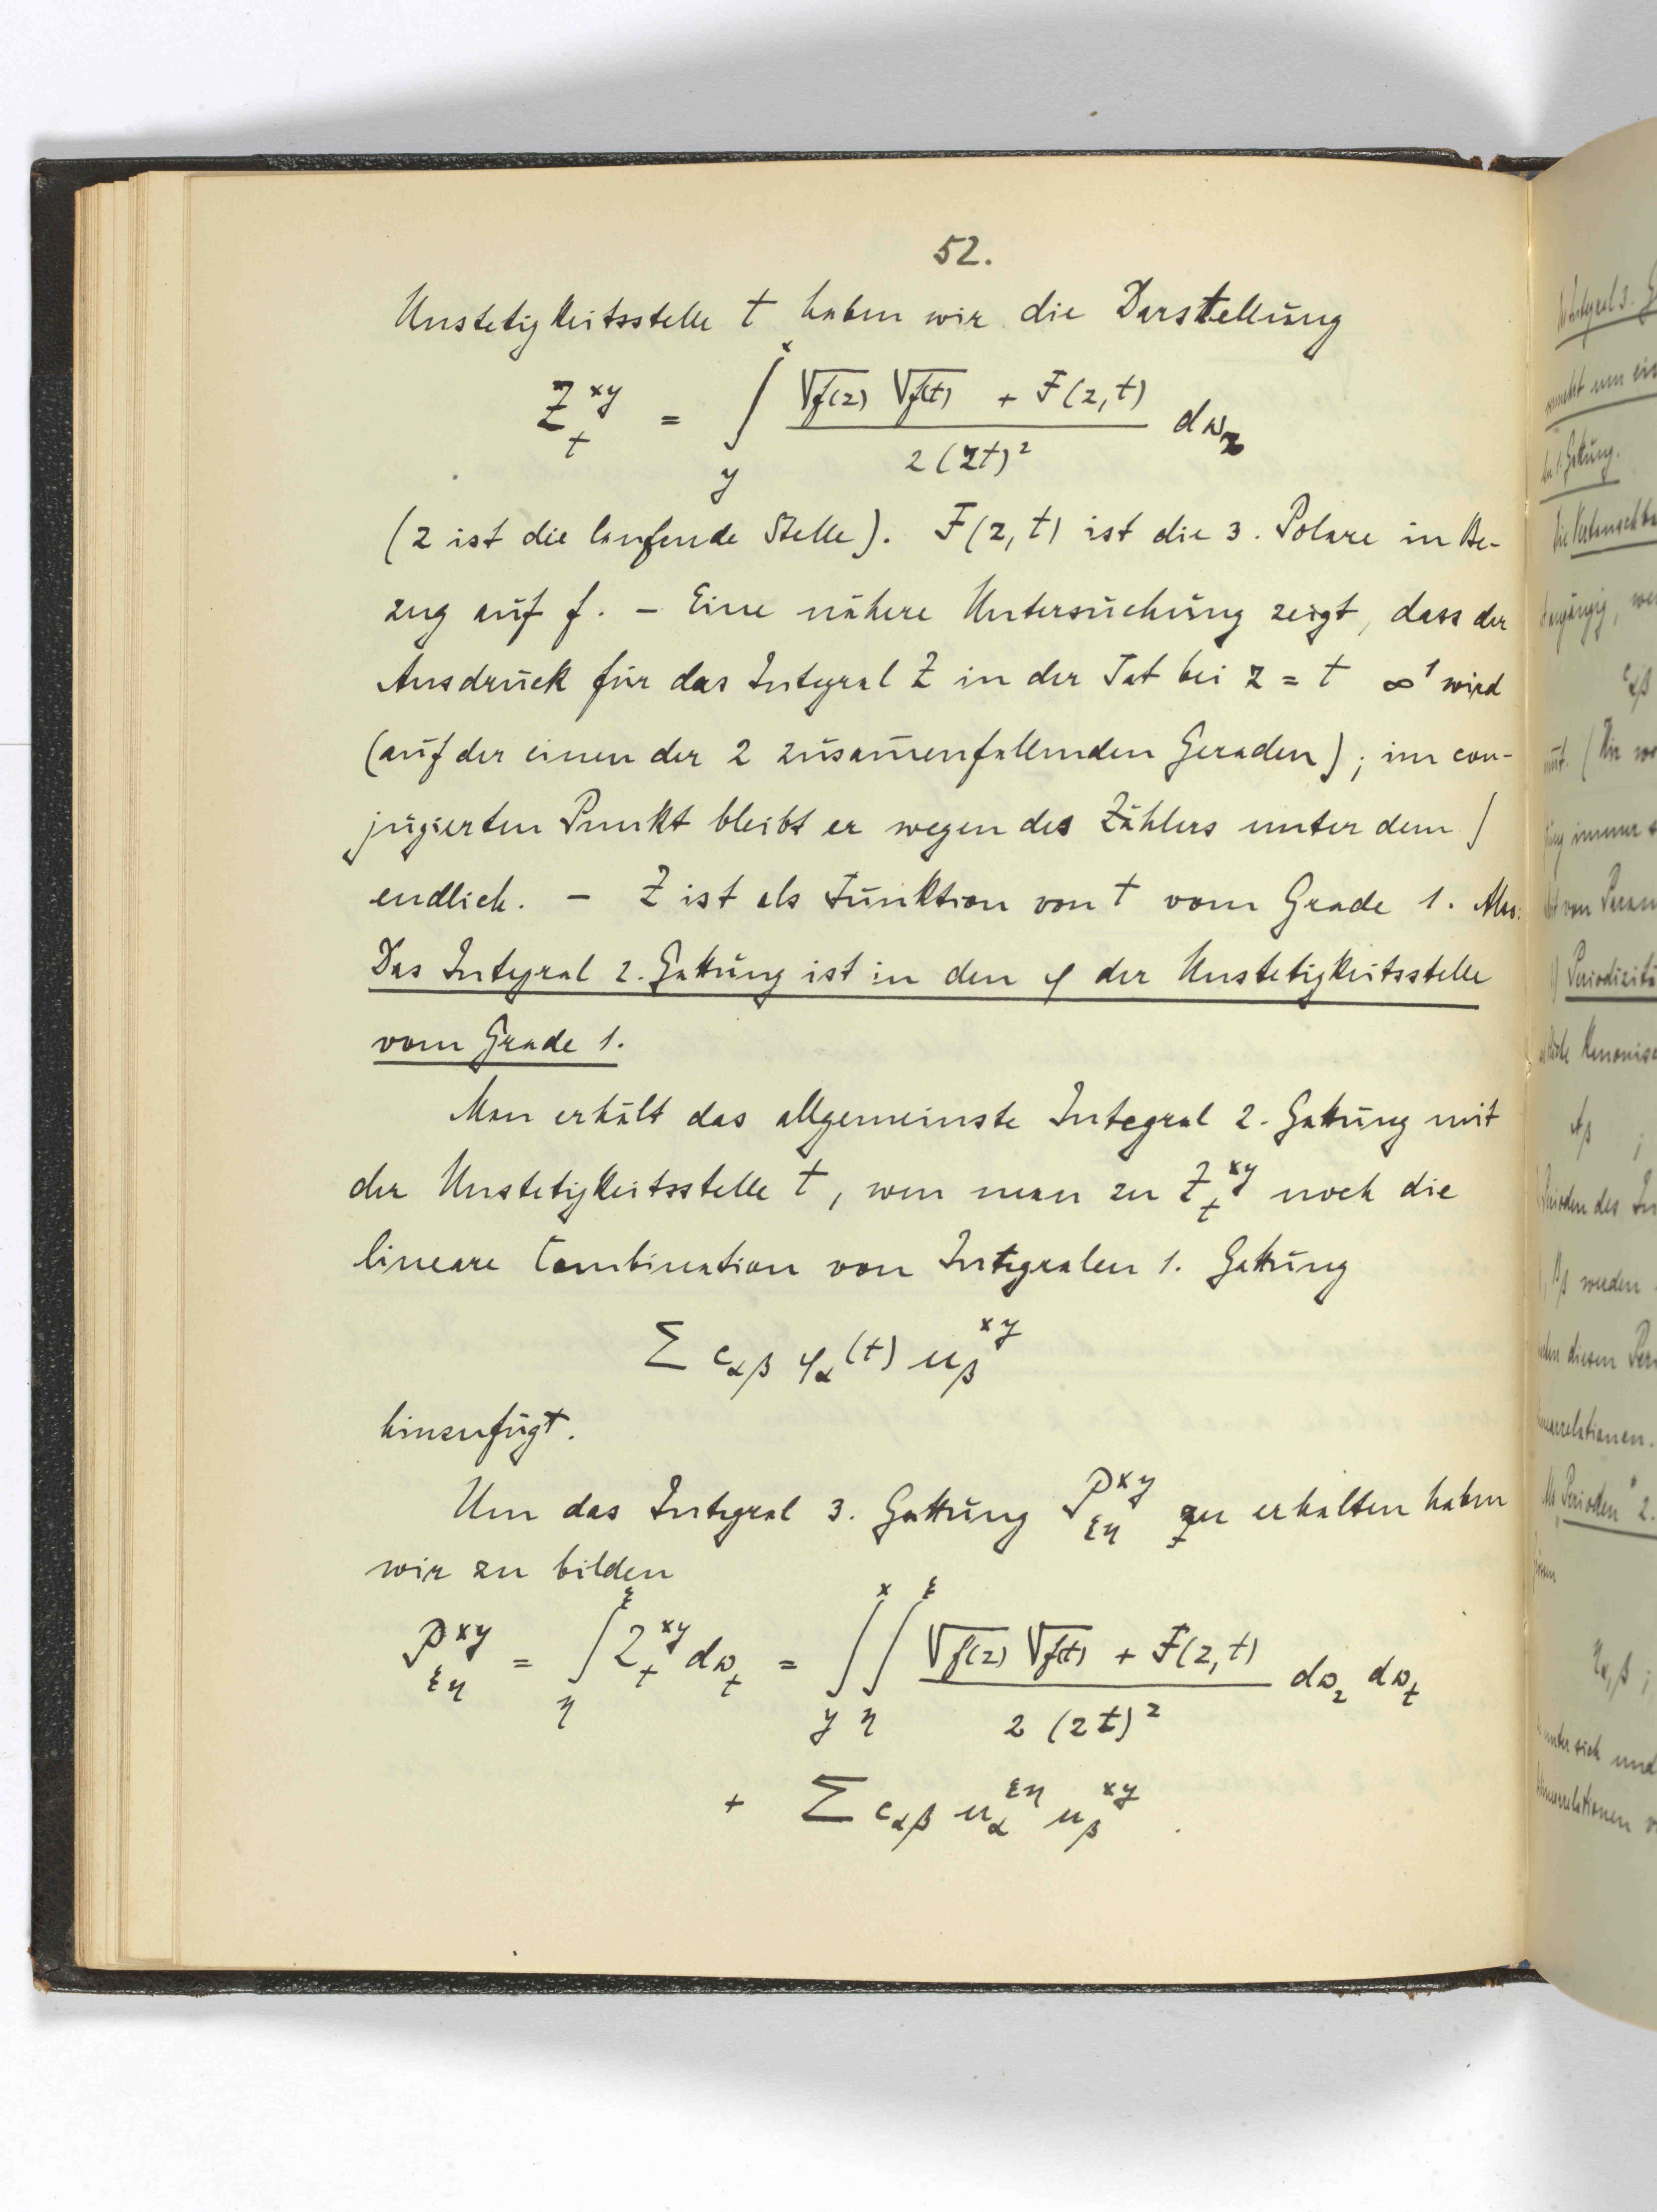 52.
Unstetigkeitsstelle t haben wir die Darstellung
Z_t^{xy} = ∫_y^x (√f(z) √f(t) + F(z,t)) / (2(zt)²) dω_z
(z ist die laufende Stelle). F(z,t) ist die 3. Polare in Be-
zug auf f. – Eine nähere Untersuchung zeigt, dass der
Ausdruck für das Integral Z in der Tat bei z = t ∞¹ wird
(auf der einen der 2 zusam̄enfallenden Geraden); im con-
jugierten Punkt bleibt er wegen des Zählers unter dem ∫
endlich. – Z ist als Funktion von t vom Grade 1. Also:
Das Integral 2. Gattung ist in den φ der Unstetigkeitsstelle
vom Grade 1.
Man erhält das allgemeinste Integral 2. Gattung mit
der Unstetigkeitsstelle t, wen man zu Z_t^{xy} noch die
lineare Combination von Integralen 1. Gattung
Σ c_{αβ} φ_α(t) u_β^{xy}
hinzufügt.
Um das Integral 3. Gattung P_{ξη}^{xy} zu erhalten haben
wir zu bilden
P_{ξη}^{xy} = ∫_η^ξ Z_t^{xy} dω_t = ∫_y^x ∫_η^ξ (√f(z) √f(t) + F(z,t)) / (2(zt)²) dω_z dω_t
+ Σ c_{αβ} u_α^{ξη} u_β^{xy}.